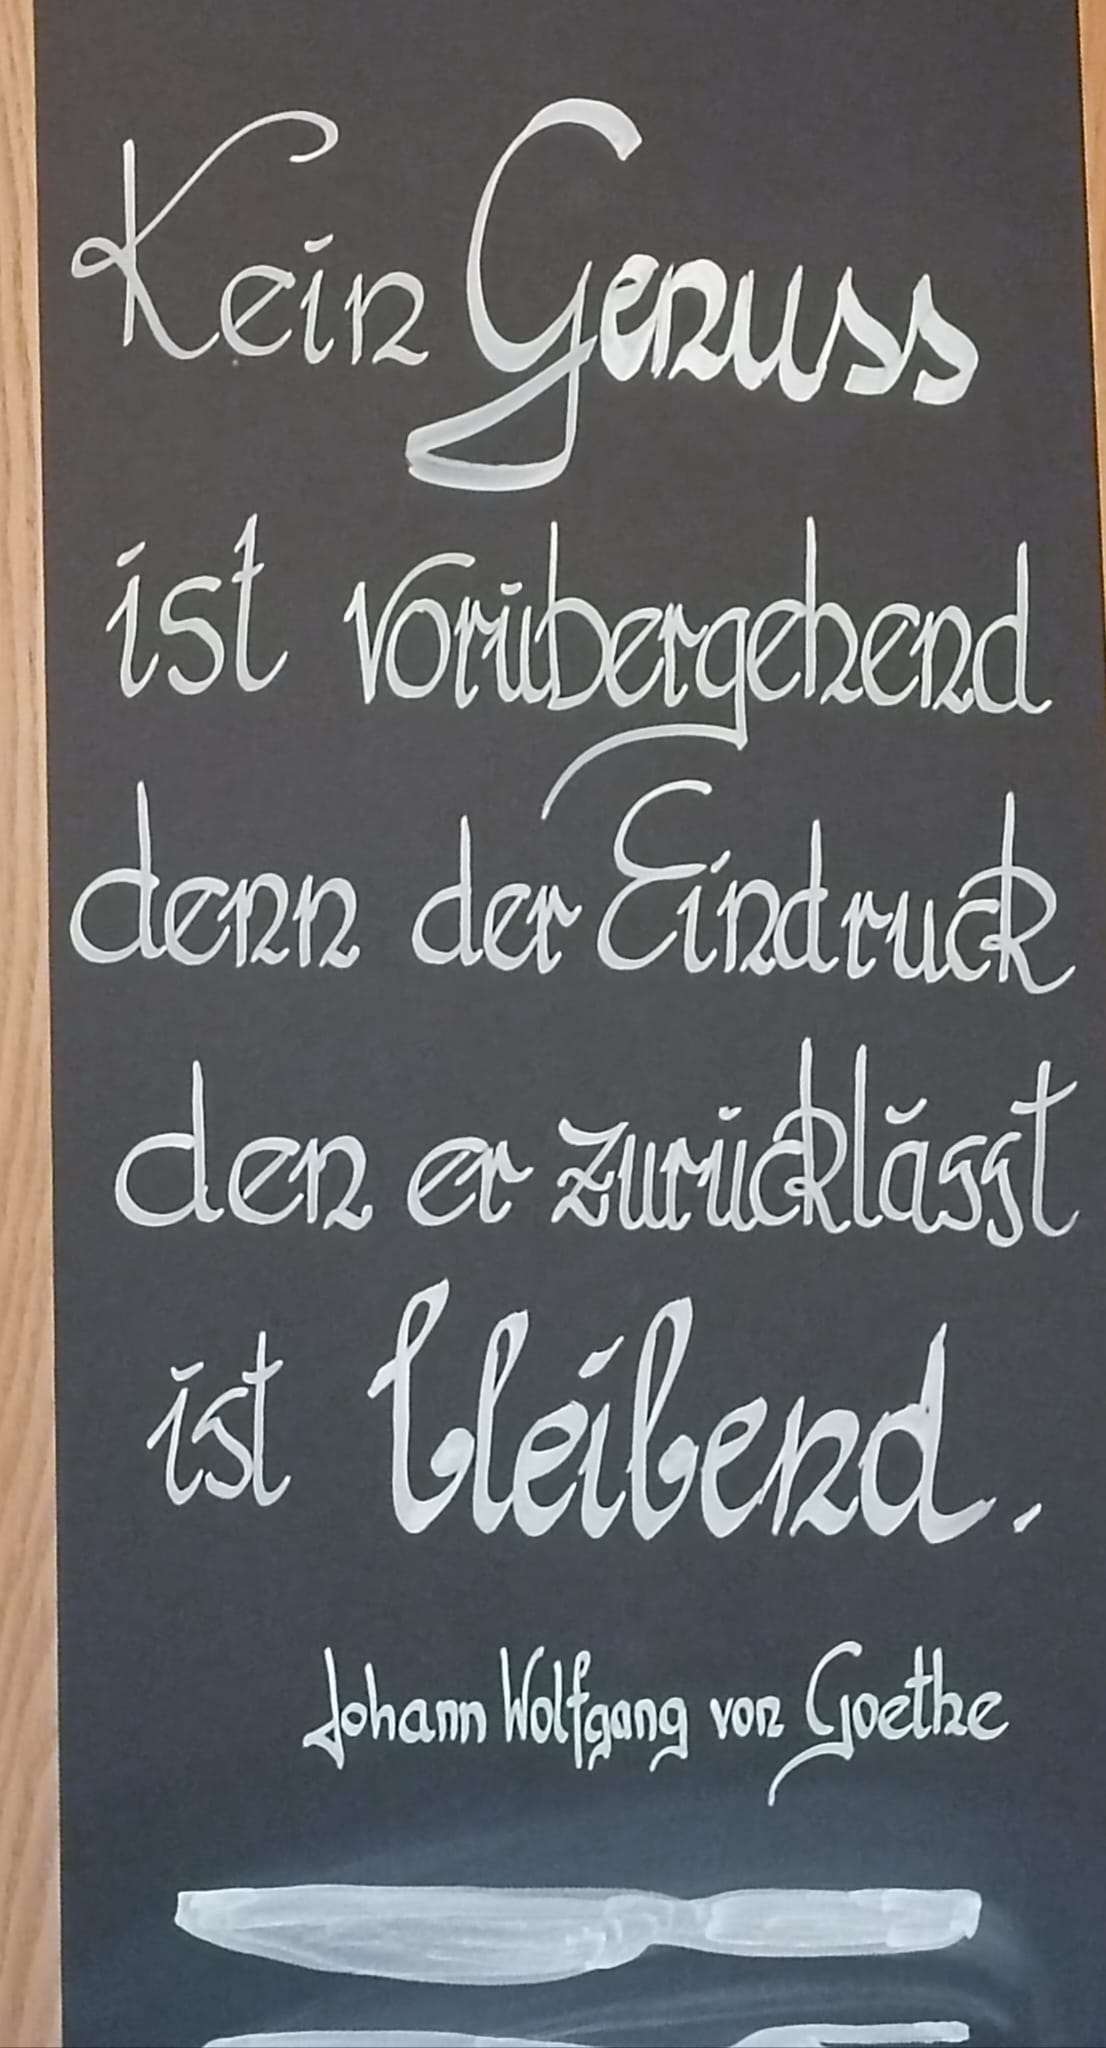 Kein Genuss
ist vorübergehend
denn der Eindruck
den er zurücklässt
ist bleibend.
Johann Wolfgang von Goethe